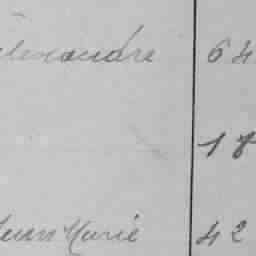 Alexandre 64
18
Jean Marie 42